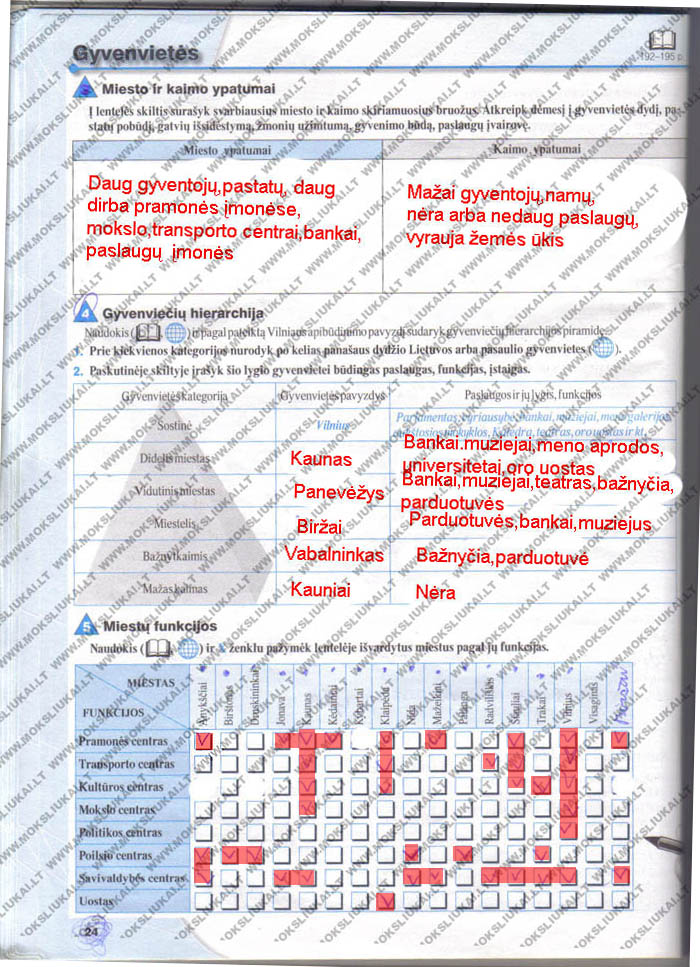 Gyvenvietės
192–195 p.
Miesto ir kaimo ypatumai
Į lentelės skiltis surašyk svarbiausius miesto ir kaimo skiriamuosius bruožus. Atkreipk dėmesį į gyvenvietės dydį, pa-
statų pobūdį, gatvių išsidėstymą, žmonių užimtumą, gyvenimo būdą, paslaugų įvairovę.
Miesto ypatumai
Kaimo ypatumai
Daug gyventojų,pastatų, daug
dirba pramonės įmonėse,
mokslo,transporto centrai,bankai,
paslaugų įmonės
Mažai gyventojų,namų,
nėra arba nedaug paslaugų,
vyrauja žemės ūkis
4 Gyvenviečių hierarchija
Naudokis ( , ) ir pagal pateiktą Vilniaus apibūdinimo pavyzdį sudaryk gyvenviečių hierarchijos piramidę.
1. Prie kiekvienos kategorijos nurodyk po kelias panašaus dydžio Lietuvos arba pasaulio gyvenvietes ( ).
2. Paskutinėje skiltyje įrašyk šio lygio gyvenvietei būdingas paslaugas, funkcijas, įstaigas.
Gyvenvietės kategorija Gyvenvietės pavyzdys Paslaugos ir jų lygis, funkcijos
Sostinė Vilnius Parlamentas, vyriausybė, bankai, muziejai, meno galerijos,
aukštosios mokyklos, Katedra, teatras, oro uostas ir kt.
Didelis miestas Kaunas Bankai.muziejai,meno aprodos,
universitetai,oro uostas
Vidutinis miestas Panevėžys Bankai,muziejai,teatras,bažnyčia,
parduotuvės
Miestelis Biržai Parduotuvės,bankai,muziejus
Bažnytkaimis Vabalninkas Bažnyčia,parduotuvė
Mažas kaimas Kauniai Nėra
5 Miestų funkcijos
Naudokis ( , ) ir X ženklu pažymėk lentelėje išvardytus miestus pagal jų funkcijas.
MIESTAS
FUNKCIJOS
Anykščiai Birštonas Druskininkai Jonava Kaunas Kėdainiai Kybartai Klaipėda Nida Mažeikiai Palanga Radviliškis Šiauliai Trakai Vilnius Visaginas
Pramonės centras
Transporto centras
Kultūros centras
Mokslo centras
Politikos centras
Poilsio centras
Savivaldybės centras
Uostas
24
WWW.MOKSLIUKAI.LT